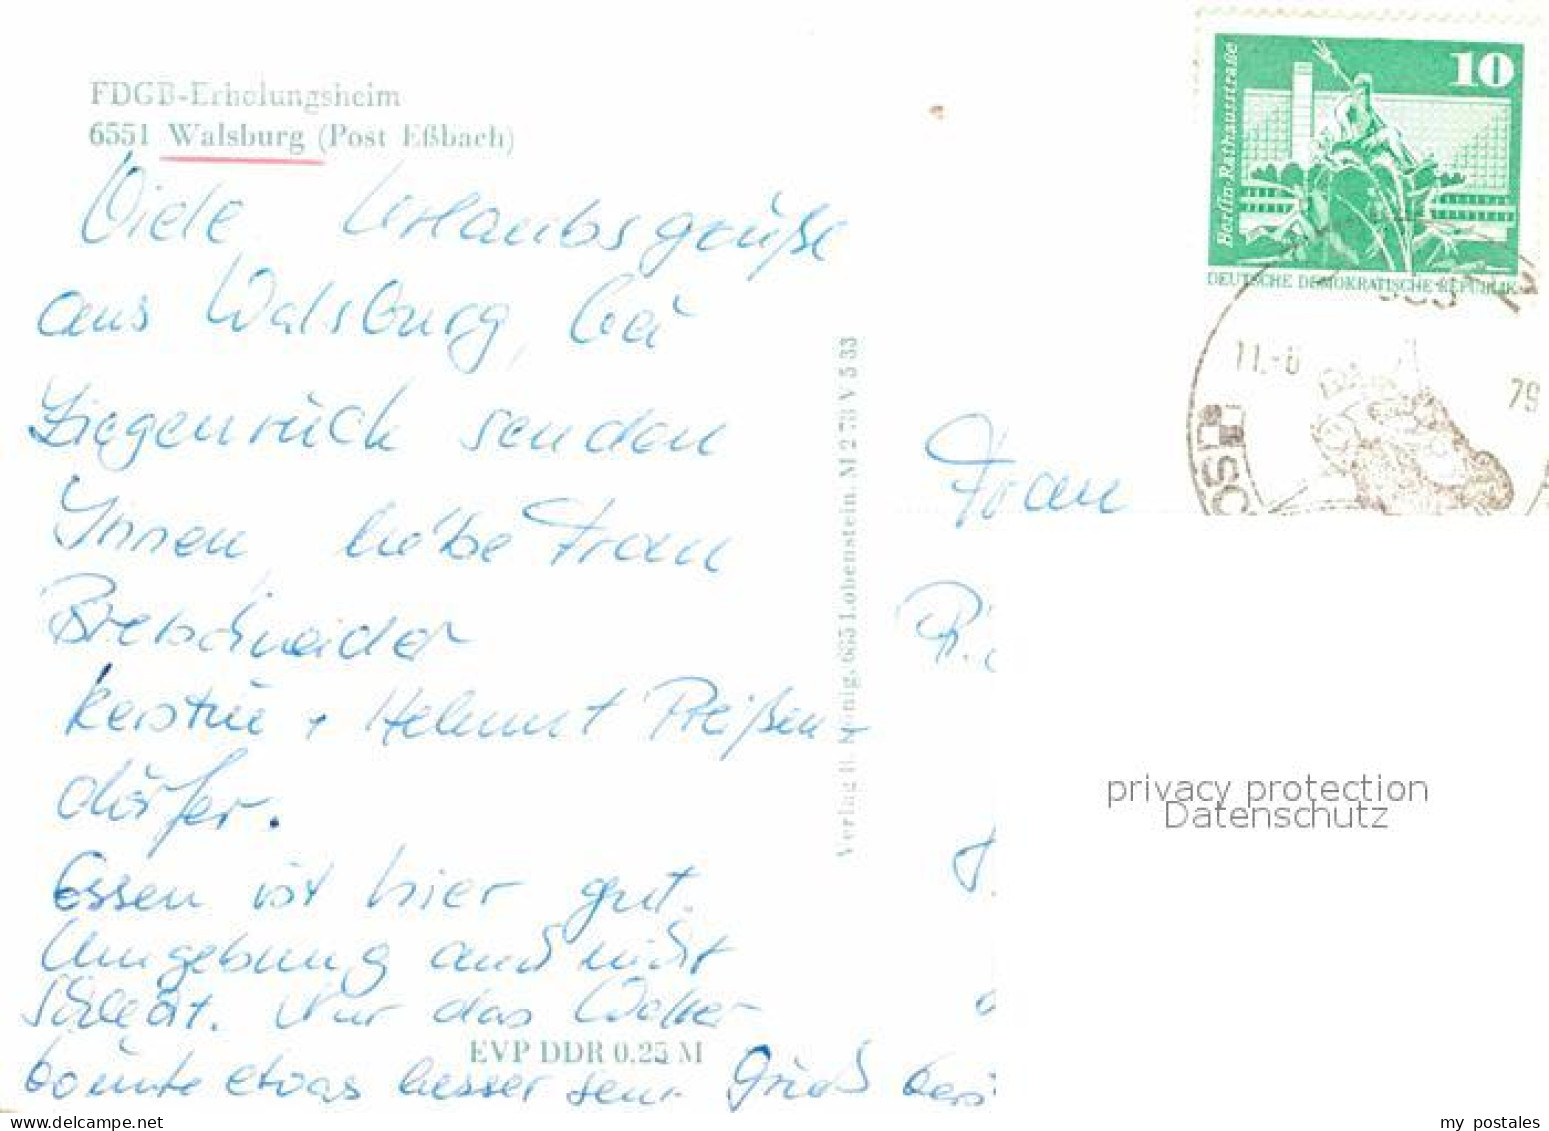 FDGB-Erholungsheim
6551 Walsburg (Post Eßbach)
Viele Urlaubsgrüße
aus Walsburg, bei
Ziegenrück senden
Ihnen liebe Frau
Bretschneider
Kerstin + Helmut Preißen-
dörfer.
Essen ist hier gut.
Umgebung auch nicht
schlecht. Nur das Wetter
könnte etwas besser sein. Gruß
EVP DDR 0.25 M
Verlag R. König, 685 Lobenstein. M 2 78 V 5 33
10
Berlin-Rathausstraße
DEUTSCHE DEMOKRATISCHE REPUBLIK
11.-6
79
Frau
privacy protection
Datenschutz
my postales